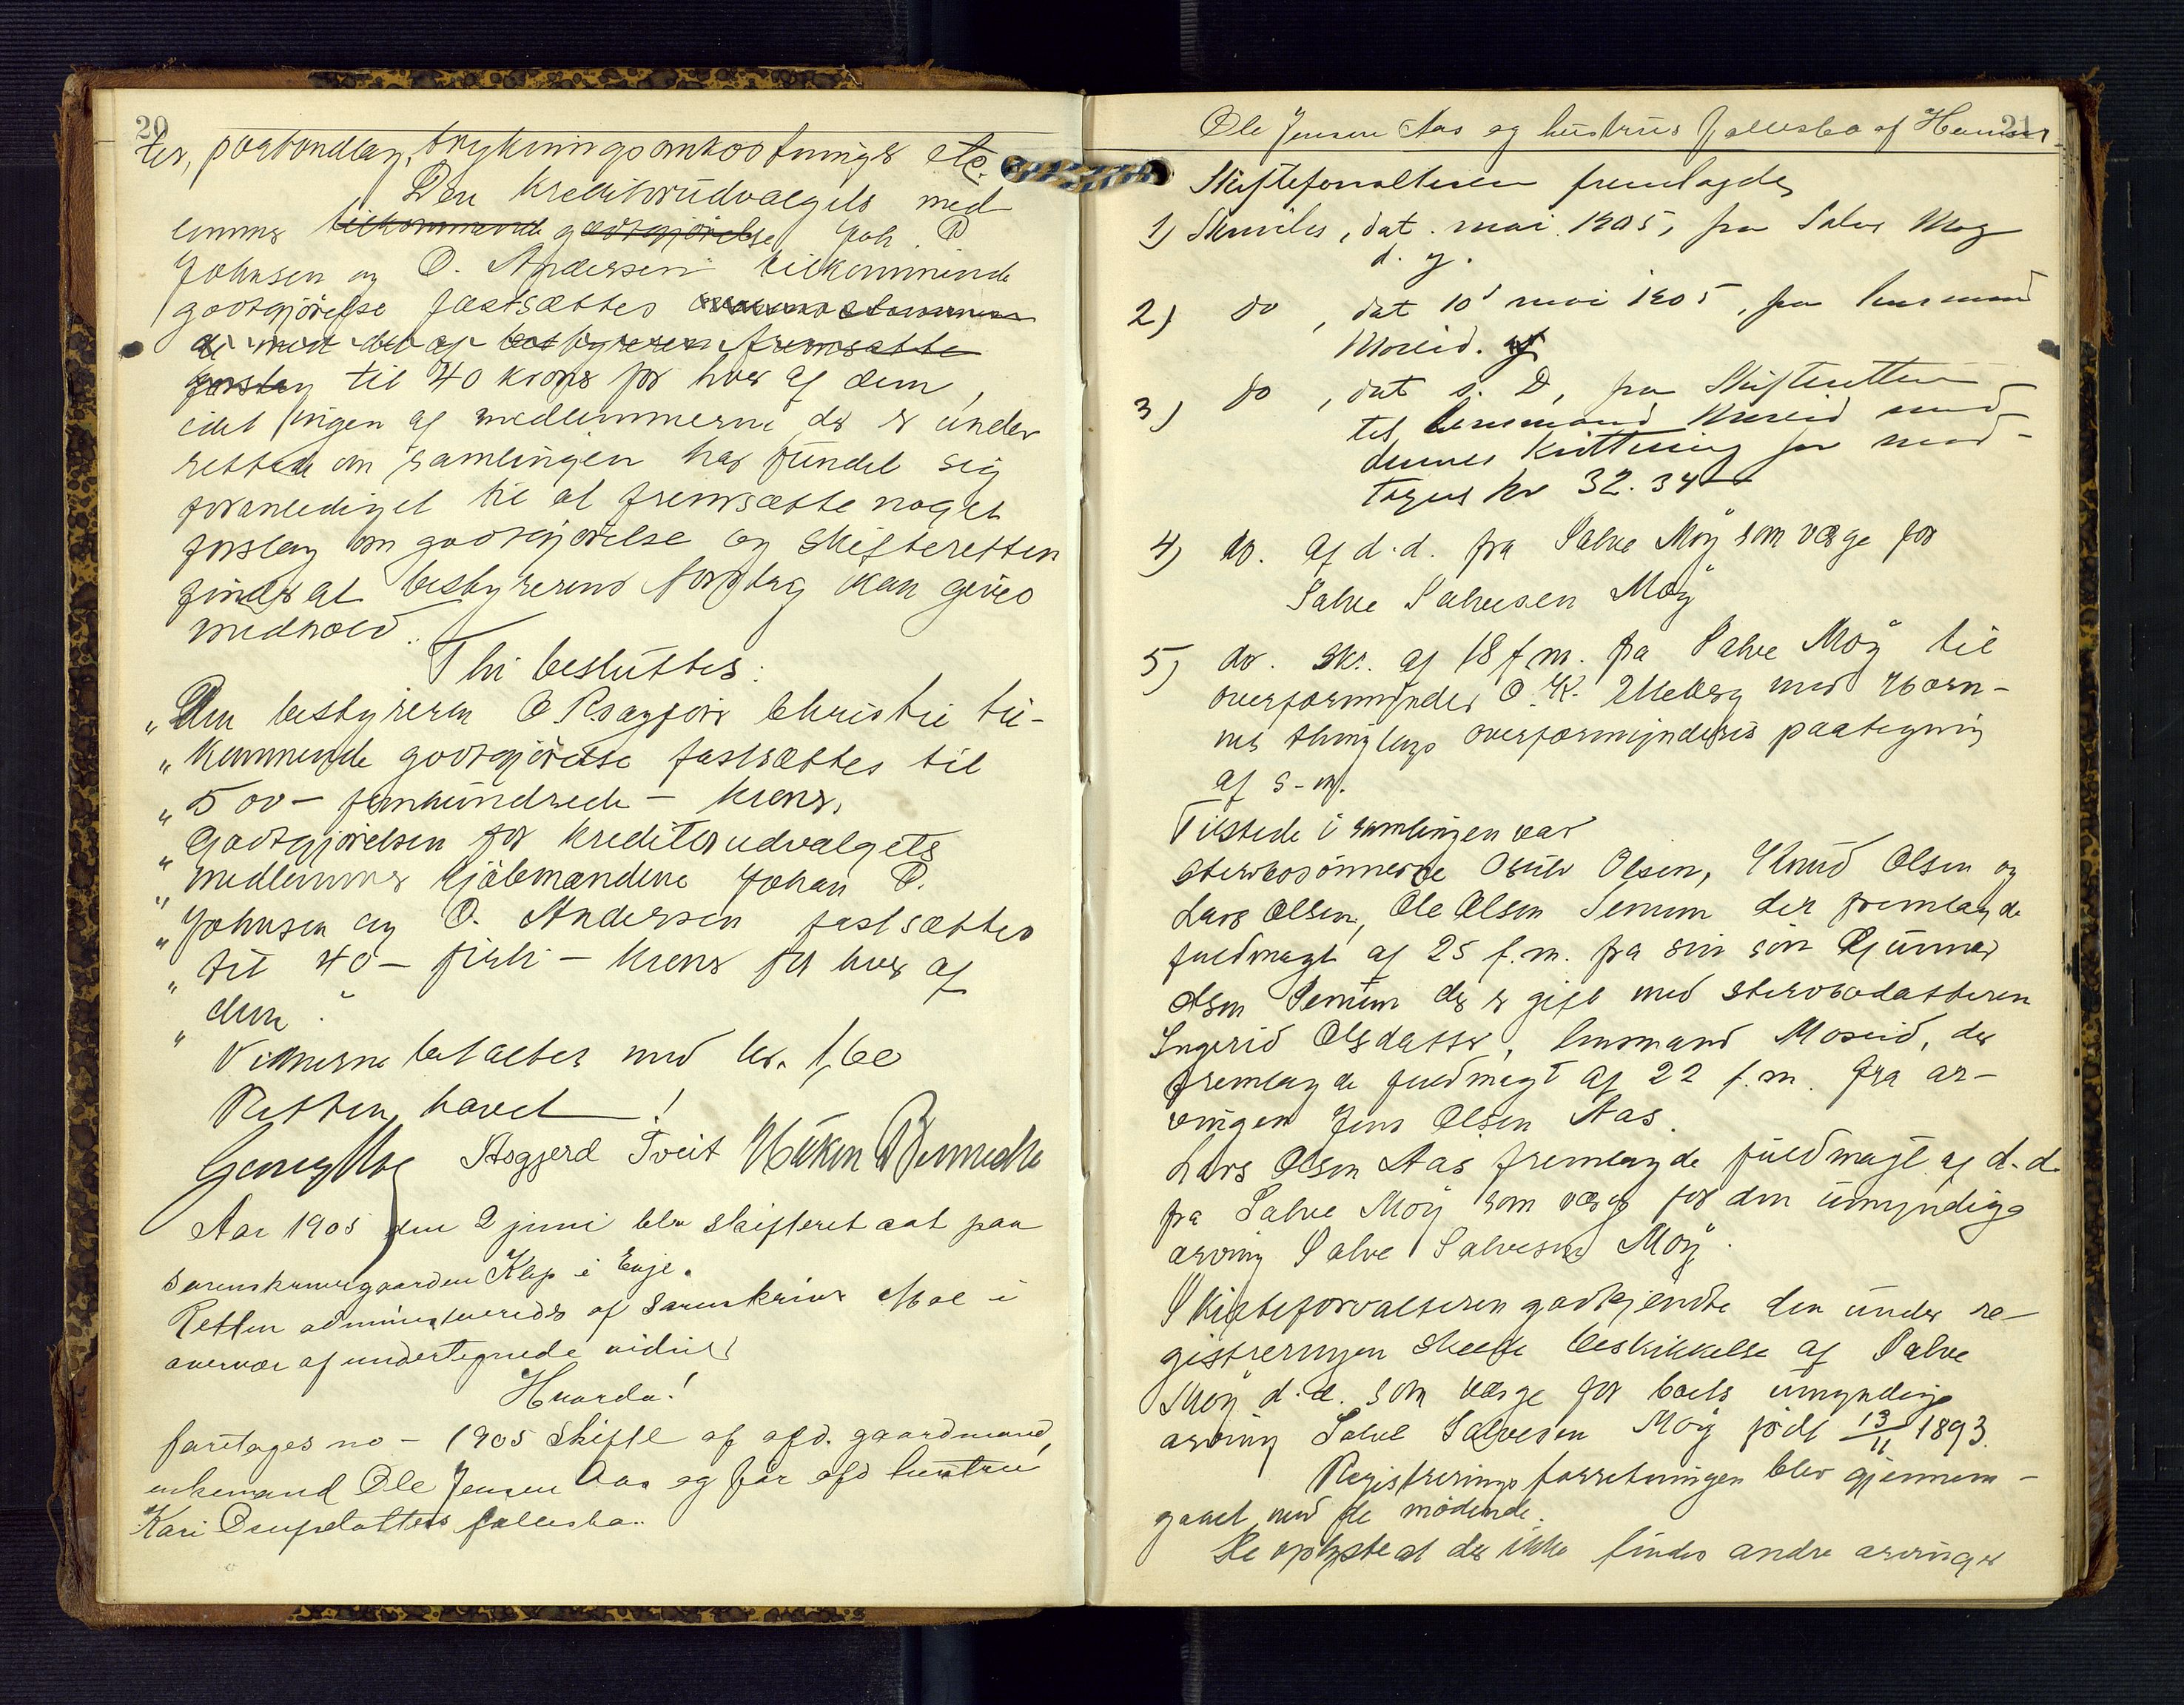 20
ter, postombæring, trykningsomkostninger etc.
Den kreditorudvalgets med
lemmer tilkommende godtgjörelse Joh. D.
Johnsen og O. Andersen tilkommende
godtgjörelse fastsættes
med det af bestyreren fremsatte
forslag til 40 kroner for hver af dem,
idet ingen af medlemmerne, der er under
rettede om samlingen har fundet sig
foranlediget til at fremsætte noget
forslag om godtgjörelse og skifteretten
finder at bestyrerens forslag kan gives
medhold.
Thi besluttes:
„Den bestyreren O Rsagförer Christie til-
„kommende godtgjörelse fastsættes til
„500 – femhundrede – kroner.
„Godtgjörelsen for kreditorudvalgets
„medlemmer kjöbmændene Johan D.
„Johnsen og O. Andersen fastsættes
„til 40 – firti – kroner for hver af
„dem".
Vidnerne betaltes med kr. 1,60
Retten hævet!
Georg Moe Asgjerd Tveit Håken Bennedke
Aar 1905 den 2 juni blev skifteret sat paa
sorenskrivergaarden Klep i Evje.
Retten administreredes af sorenskriver Moe i
overvær af undertegnede vidner
Hvorda!
foretages no – 1905 Skifte af afd. gaardmand,
enkemand Ole Jensen Aas og før afd hustru
Kari Osufsdatters fællesbo.
Ole Jensen Aas og hustrus fællesbo af Hornnes
21
Skifteforvalteren fremlagde
1) Skrivelse, dat. mai 1905, fra Salve Møy
d. y.
2) do, dat 10' mai 1905, fra lensmand
Moseid.
3) do, dat s. D, fra Skifteretten
til lensmand Moseid med
dennes kvittering for mod-
tagne kr 32.34
4) do. af d.d. fra Salve Möy som værge for
Salve Salvesen Möy
5) do. skr. af 18 f.m. fra Salve Möy til
overformynder O. K. Uleberg med Horn-
nes thinglags overformynderis paategning
af s-m.
Tilstede i samlingen var
sterbosönnerne Osulv Olsen, Knud Olsen og
Lars Olsen, Ole Olsen Senum der fremlagde
fuldmagt af 25 f.m. fra sin sön Gunnar
Olsen Senum der er gift med sterbodatteren
Ingerid Olsdatter, lensmand Moseid, der
fremlagde fuldmagt af 22 f.m. fra ar-
vingen Jens Olsen Aas.
Lars Olsen Aas fremlagde fuldmagt af d.d.
fra Salve Möy som værge for den umyndige
arving Salve Salvesen Möy.
Skifteforvalteren godkjendte den under re-
gistreringen skeede beskikkelse af Salve
Möy d.æ. som værge for boets umyndige
arving Salve Salvesen Möy född 13/11 1893.
Registreringsforretningen blev gjennem-
gaaet med de mödende.
De oplyste at der ikke findes andre arvinger